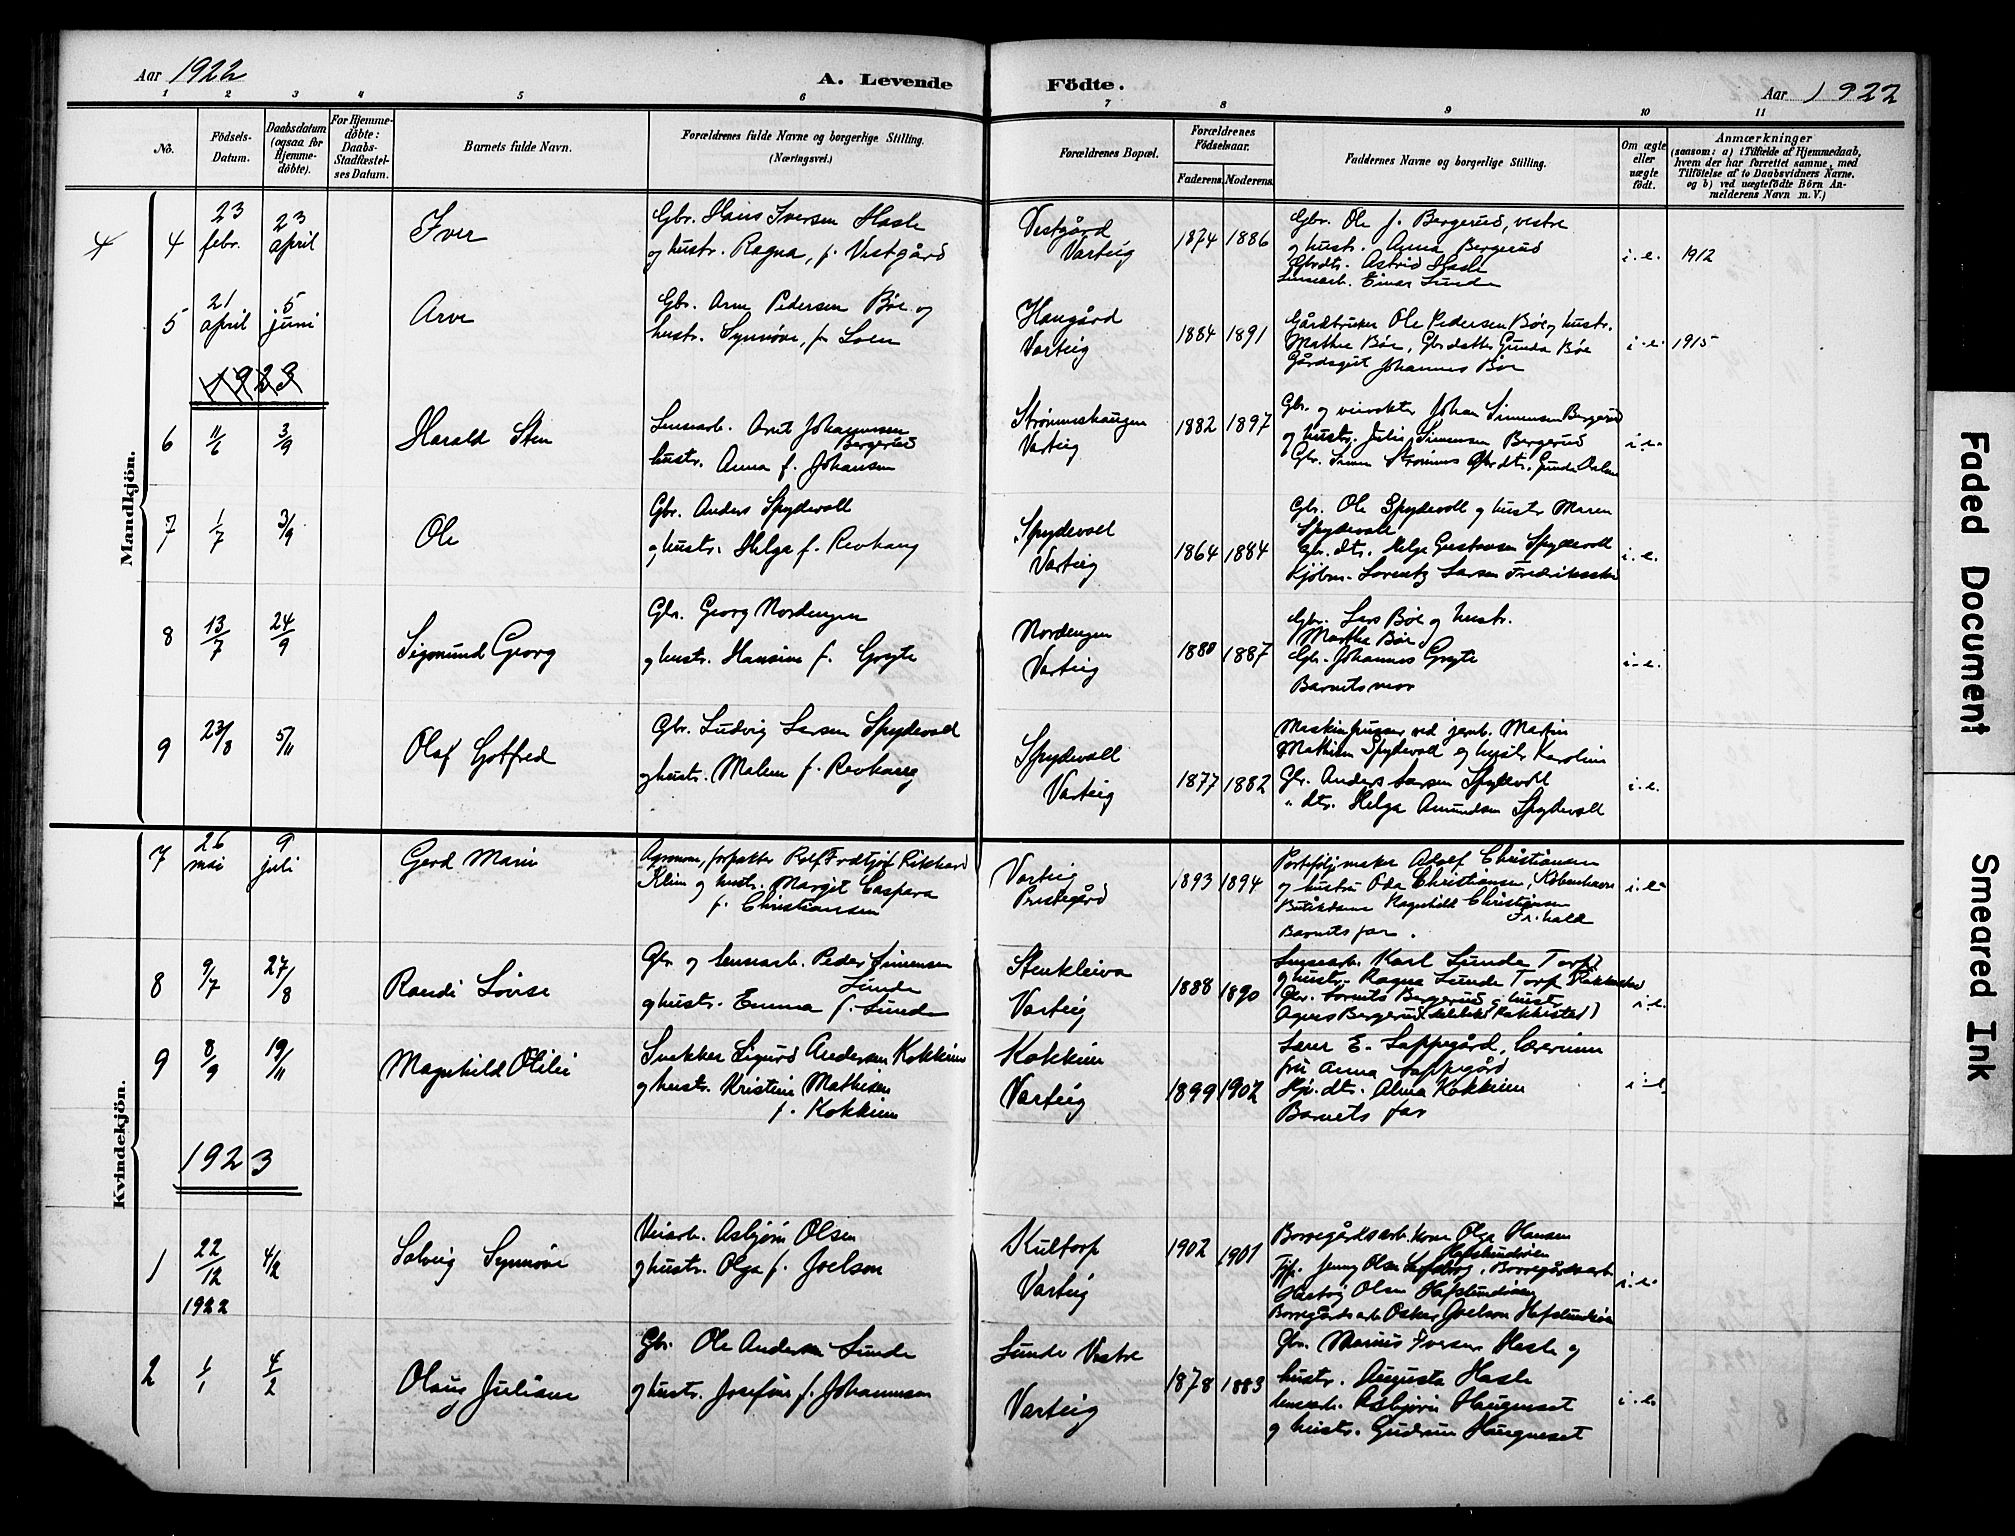 Aar 1922
A. Levende Födte.
Aar 1922
1 2 3 4 5 6 7 8 9 10 11
No.
Födsels-Datum.
Daabsdatum (ogsaa for Hjemmedöbte).
For Hjemmedöbte: Daabs-Stadfæstelses Datum.
Barnets fulde Navn.
Forældrenes fulde Navne og borgerlige Stilling. (Næringsvei.)
Forældrenes Bopæl.
Forældrenes Födselsaar.
Faderens. Moderens.
Faddernes Navne og borgerlige Stilling.
Om ægte eller uægte födt.
Anmærkninger
(saasom: a) i Tilfælde af Hjemmedaab, hvem der har forrettet samme, med Tilföielse af to Daabsvidners Navne. og b) ved uægtefödte Börn Anmelderens Navn m. V.)
Mandkjön.
4 4 23 febr. 23 april Iver
Gbr. Hans Iversen Hasle
og hustr. Ragna, f. Vestgård
Vestgård
Varteig
1874 1886
Gbr. Ole J. Bergerud, vestre
og hustr. Anna Bergerud
Gbrdtr. Astrid Hasle
Einar Sunde
i. e. 1912
5 21 april 5 juni Arve
Gbr. Arne Pedersen Böe og
hustr. Synnöve, f. Loen
Haugård
Varteig
1884 1891
Gårdbruker Ole Pedersen Böe og hustr.
Mathea Böe, Gbrdatter Gunda Böe
Gårdsgut Johannes Böe
i. e. 1915
1923
6 11/6 3/9 Harald Sten
Arnt Johannesen
Bergerud
hustr. Anna f. Johansen
Strömmeshaugen
Varteig
1882 1897
Gbr. og veivokter Johan Simensen Bergerud
og hustr. Julie Simensen Bergerud
Gbr. Simen Strömnes Gbrdtr. Gunda
i. e.
7 1/7 3/9 Ole
Gbr. Anders Spydevold
og hustr. Helga f. Revhaug
Spydevold
Varteig
1864 1884
Gbr. Ole Spydevold og hustr Maren
Spydevold
Gbr. dtr. Helga Gustavsen Spydevold
Kjöbm. Lorentz Larsen Fredriksstad
i. e.
8 13/7 24/9 Sigmund Georg
Gbr. Georg Nordengen
og hustr. Hansine f. Gryte
Nordengen
Varteig
1880 1887
Gbr. Lars Böe og hustr.
Martha Böe
Gbr. Johannes Gryte
Barnets mor
i. e.
9 23/8 5/11 Olaf Gotfred
Gbr. Ludvig Larsen Spydevold
og hustr. Malene f. Revhaug
Spydevold
Varteig
1877 1882
Maskinpusser ved jernb. Martin
Mathisen Spydevold og hustr Karoline
Gbr. Anders Larsen Spydevold
" dtr. Helga Amundsen Spydevold
i. e.
Kvindekjön.
7 26 mai 9 juli Gerd Marie
Agronom, forpakter Rolf Fridtjof Rikhard
Klim og hustr. Margit Caspara
f. Christiansen
Varteig
Prestegård
1893 1894
Porteföljmaker Adolf Christiansen
og hustru Oda Christiansen, Köbenhavn
Butikdame Ragnhild Christiansen
Fr.hald
Barnets far.
i. e.
8 9/7 27/8 Randi Lovise
Gbr. og lensearb. Peder Simensen
Sunde
og hustr. Emma f. Sunde
Stenkleiva
Varteig
1888 1890
Lensearb. Karl Sunde Torp
og hustr. Ragna Sunde Torp
Gbr. Bergerud og hustr
Agnes Bergerud
i. e.
9 8/9 19/11 Magnhild Olilie
Snekker Sigurd Andersen Kokkim
og hustr. Kristine Mathisen
f. Kokkim
Kokkim
Varteig
1899 1902
Lærer E. Lappegård, lærerinne
fru Anna Lappegård
Alma Kokkim
Barnets far
i. e.
1923
1 22/12 1922 4/2 Solveig Synnöve
Veiarb. Asbjörn Olsen
og hustr. Olga f. Joelson
Kultorp
Varteig
1902 1901
Borregårdsarb. kone Olga Hansen
Hafslundsöen
Tjp. Jenny Olsen Sarpsborg, Borregårdsarb
Hartvig Olsen Hafslundsöen
Borregårdsarb Oskar Joelson Hafslundsöen
i. e.
2 1/1 4/2 Olaug Juliane
Gbr. Ole Andersen Sunde
og hustr. Josefine f. Johannesen
Sunde Vestre
Varteig
1878 1883
Gbr. Marius Iversen Hasle og
hustr. Augusta Hasle
lensearb. Asbjörn Haugneset
og hustr. Gudrun Haugneset
i. e.
Faded Document
Smeared Ink